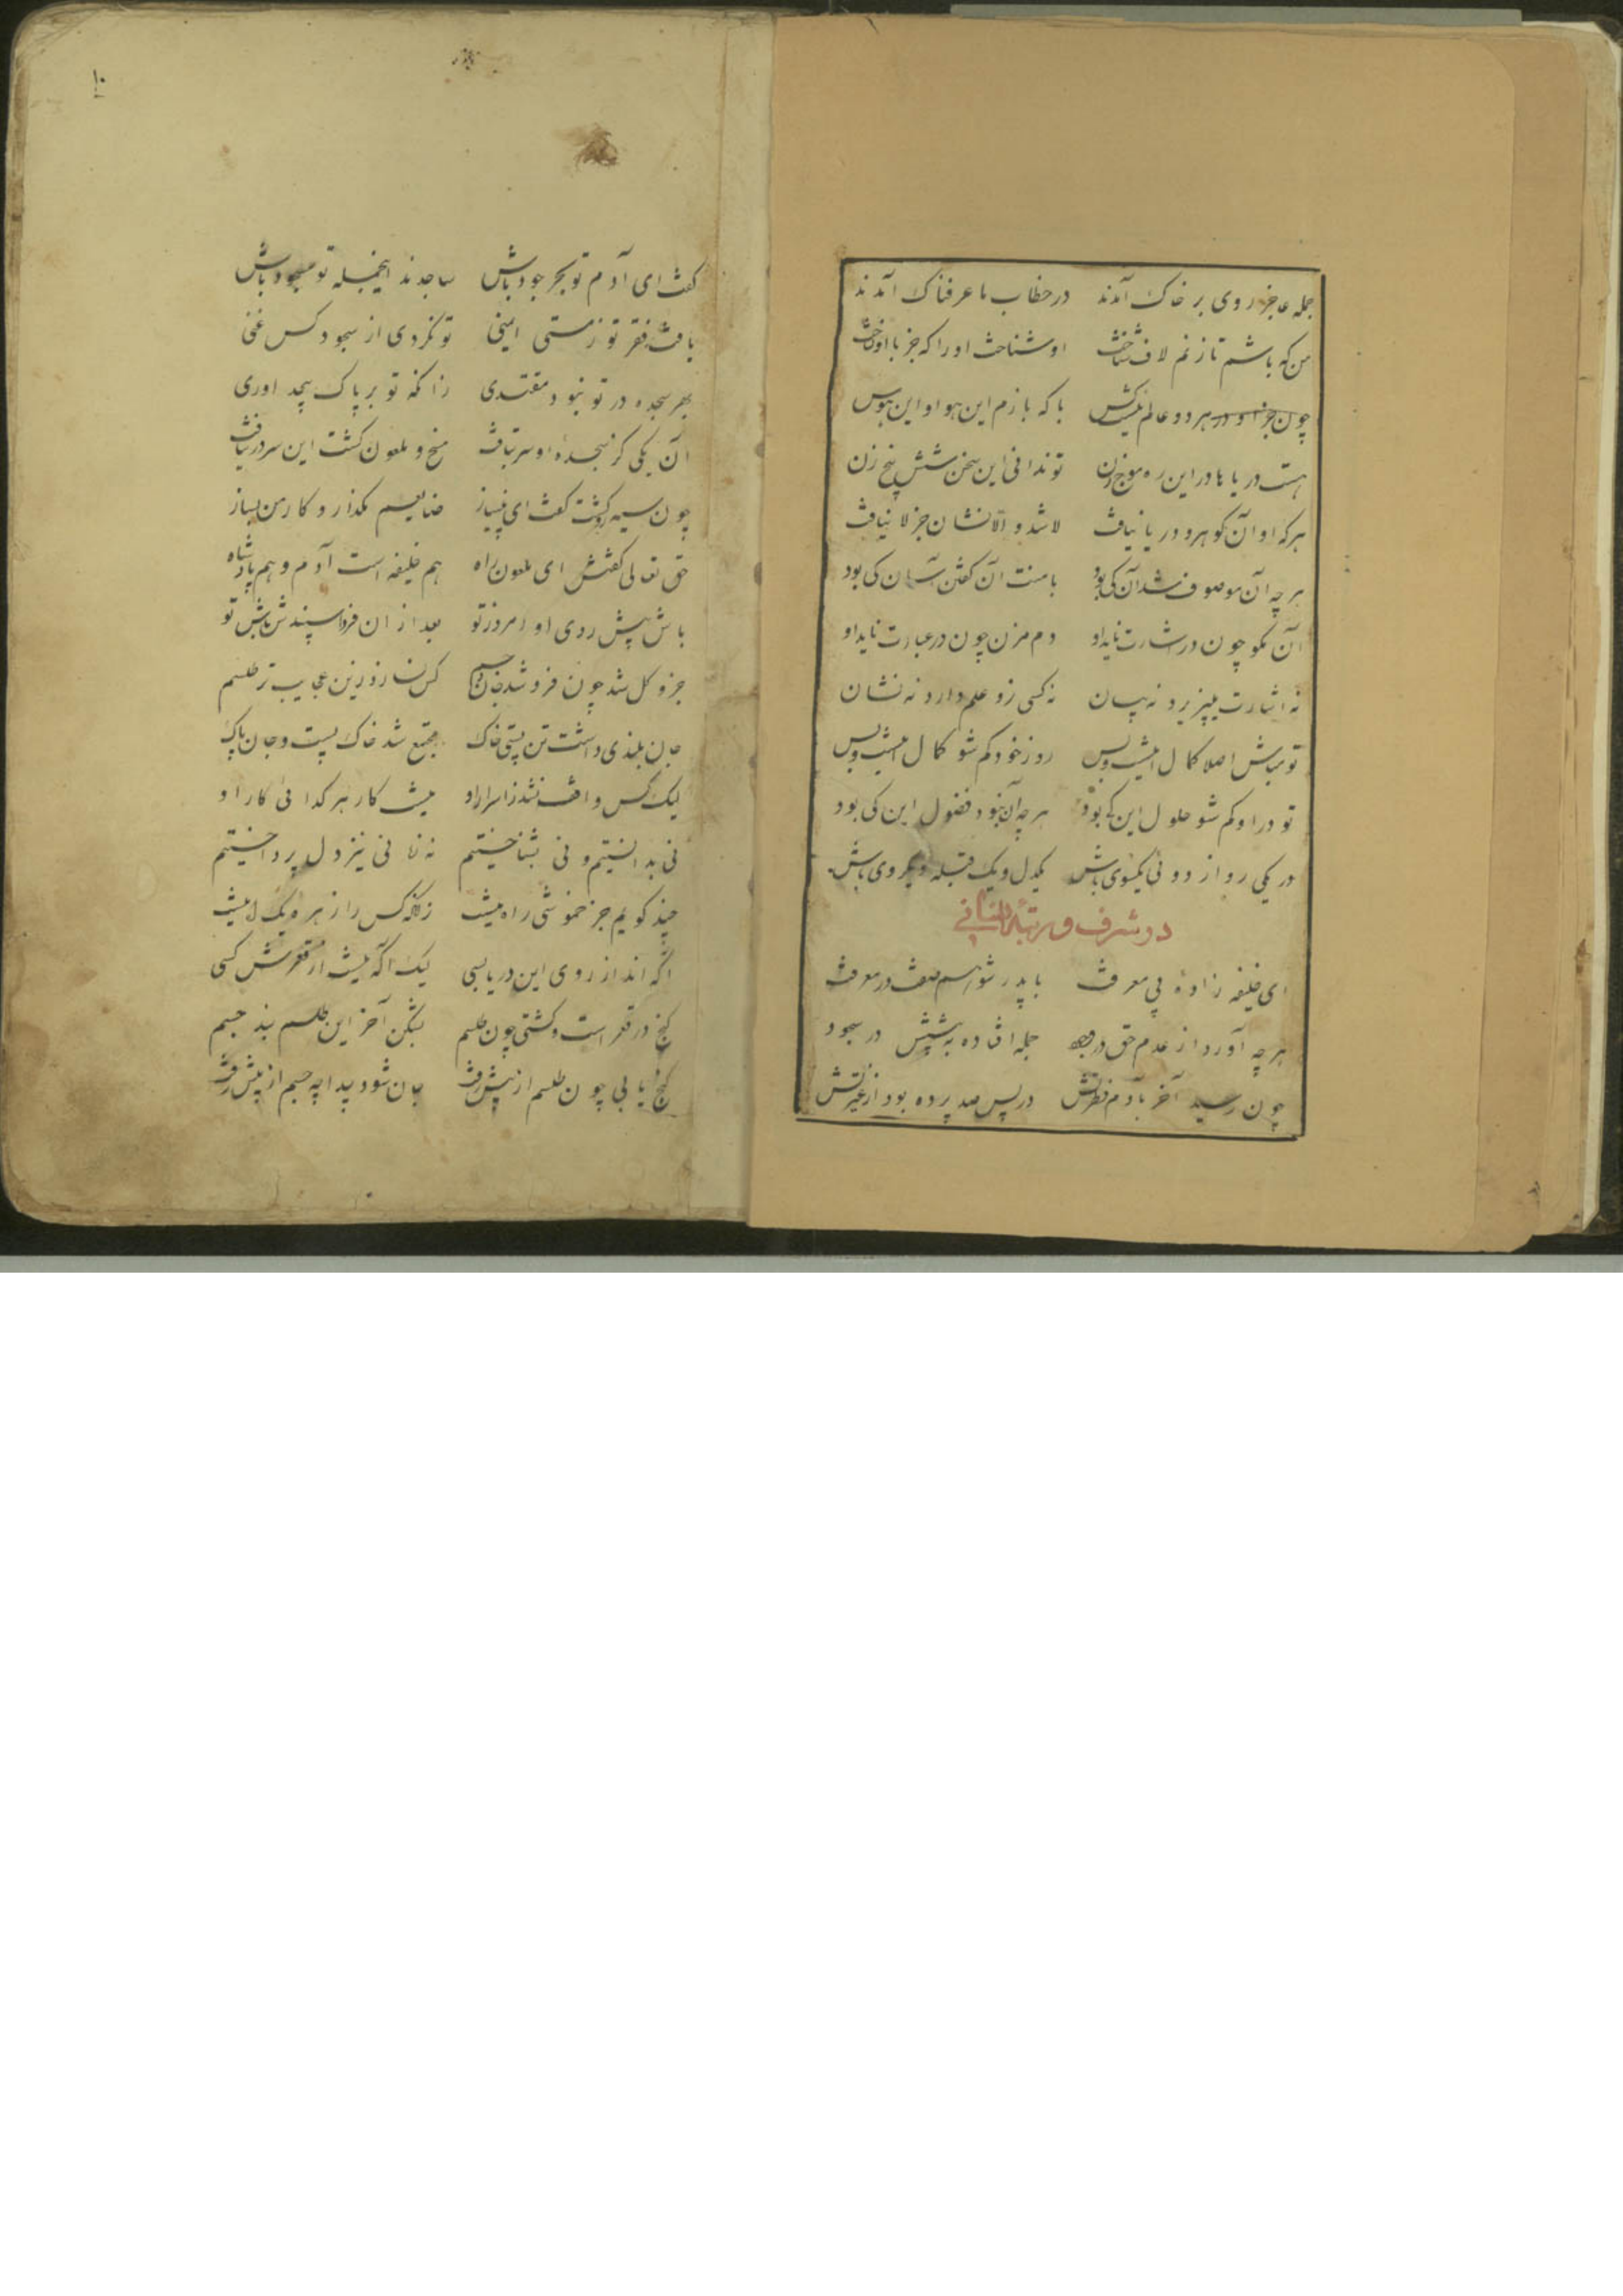 جمله عاجز روی بر خاک آمدند در خطاب ما عرفناک آمدند
من که باشم تا زنم لاف شناخت او شناخت او را که جز با او نساخت
چون جز او در هر دو عالم نیست کس با که بازم این هوا و این هوس
هست دریاها در این ره موج زن تو ندانی این سخن شش پنج زن
هر که او آن گوهر و دریا نیافت لا شد و الا نشان جز لا نیافت
هر چه آن موصوف شد آن کی بود با منت آن گفتن آسان کی بود
آن مگو چون در اشارت نایداو دم مزن چون در عبارت نایداو
نه اشارت میپذیرد نه بیان نه کسی زو علم دارد نه نشان
تو مباش اصلا کمال اینست و بس رو ز خود گم شو کمال اینست و بس
تو در او گم شو حلول این کی بود هر چه آن نبود فضول این کی بود
در یکی رو از دوئی یکسوی باش یکدل و یک قبله و یکروی باش
در شرف و مرتبهٔ انسانی
ای خلیفه زادهٔ بی معرفت با پدر شو هم صفت در معرفت
هر چه آورد از عدم حق در وجود جمله افتاده به پیشش در سجود
چون رسید آخر بآدم فطرتش در پس صد پرده بود از غیرتش
۱۰
گفت ای آدم تو بحر جود باش ساجدند اینجمله تو مسجود باش
یافت فقر تو ز هستی ایمنی تو نکردی از سجود کس غنی
بهر سجده در تو نبود مقتدی زانکه تو بر پاک بیحد اوری
آن یکی کز سجدهٔ او سر بتافت مسخ و ملعون گشت این سر در نیافت
چون سیه رو گشت گفت ای بینیاز ضایعم مگذار و کار من بساز
حق تعالی گفتش ای ملعون راه هم خلیفه است آدم و هم پادشاه
باش پیش روی او امروز تو بعد از ان فردا سپندش باش تو
جزو کل شد چون فرو شد جان بجسم کس نسازد زین عجایب تر طلسم
جان بلندی داشت تن پستی خاک مجتمع شد خاک پست و جان پاک
لیک کس واقف نشد ز اسرار او نیست کار هر گدائی کار او
نی بدانستیم و نی بشناختیم نه زمانی نیز دل پرداختیم
چند گویم جز خموشی راه نیست زانکه کس را زهرهٔ یک آه نیست
آگه اند از روی این دریا بسی لیک آگه نیست از قعرش کسی
گنج در قعر است و گشتی چون طلسم بشکن آخر این طلسم بند جسم
گنج یابی چون طلسم از پیش رفت جان شود پیدا چه جسم از پیش رفت